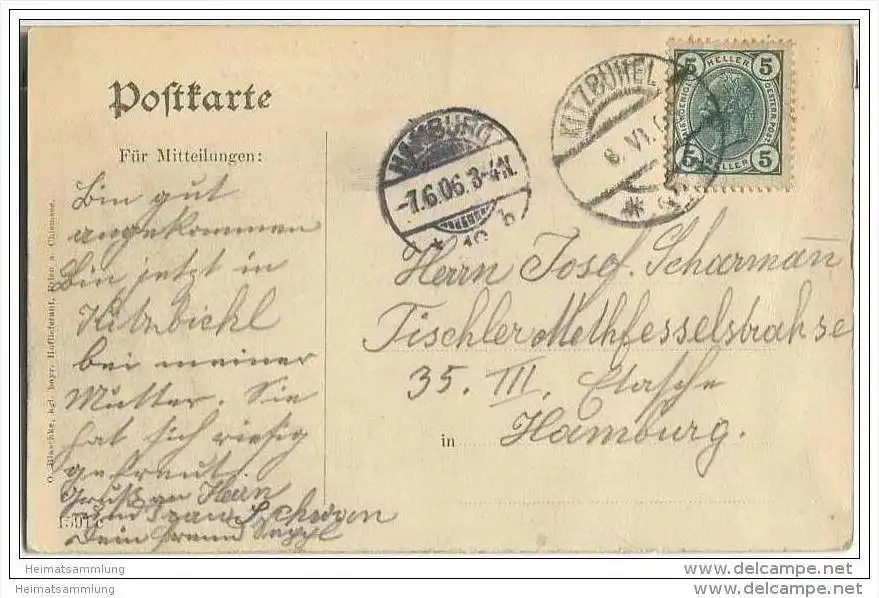 Postkarte
Für Mitteilungen:
Bin gut
angekommen
Bin jetzt in
Kitzbichl
bei meiner
Mutter. Sie
hat sich riesig
gefreut.
Gruß an Herrn
und Frau
Dein Freund Seppl
1501 c
O. Blaschke, kgl. bayr. Hoflieferant, Prien a. Chiemsee.
HAMBURG
-7.6.06.3-4N.
* 19 b
KITZBÜHEL
6. VI.
5 HELLER 5
5 HELLER 5
Herrn Josef. Scharman
Tischler Methfesselstrahse
35. III. Etasche
in Hamburg.
www.delcampe.net
Heimatsammlung
www.delcampe.net
Heimatsammlung